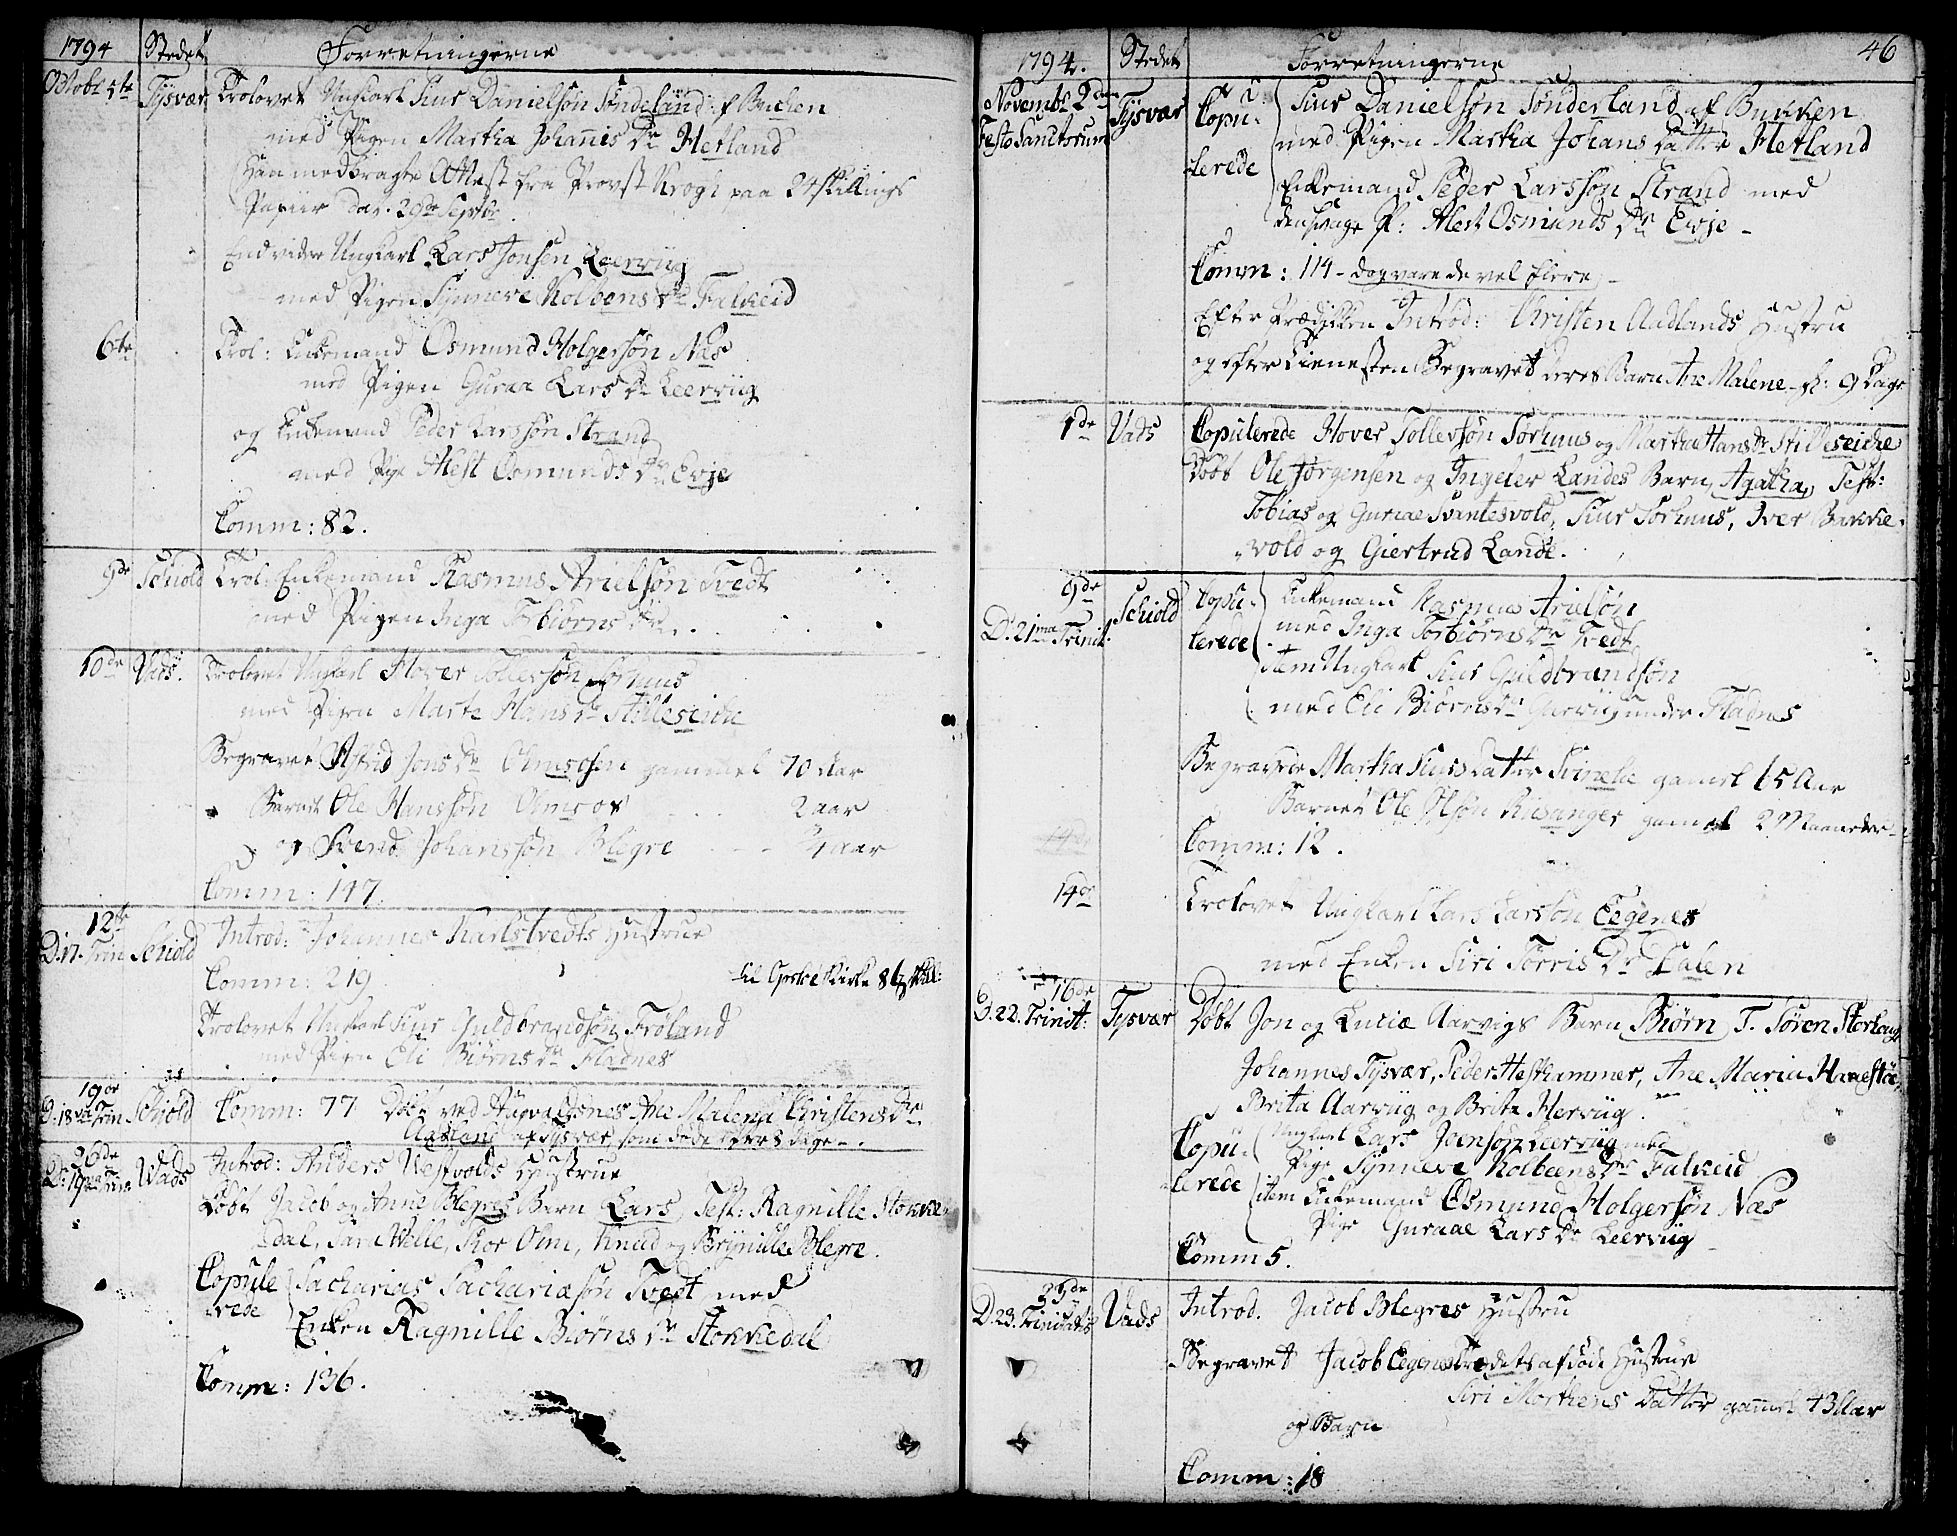 1794 Stedet Forretningerne
Octobr 5te Tysvær Trolovet Ungkarl Siur Danielsøn Sønderland af Bucken
med Pigen Martha Johannis Dr Hetland
Han medbragte Attest fra Provst Krogh paa 24 skillings
Papier dat. 29de Septbr.
Endvidere Ungkarl Lars Jonsen Leervuig
med Pigen Synneve Kolbens Dr Falkeid
6te Trol: Enkemand Osmund Holgersøn Næs
med Pigen Guraa Lars Dr Leervuig
og Enkemand Peder Larssøn Strand
med Pige Alest Osmunds Dr Evje
Comm: 82.
9de Schiold Trol: Enkemand Rasmus Arielsøn Tvedt
med Pigen Inga Torbiørns Dr.
10de Vads. Trolovet Ungkarl Hover Tollevsøn Sørhuus
med Pigen Marte Hans Dr Stilleseiche
Begravet Astrid Jons Dr Olmeosen gammel 70 Aar
Barnet Ole Hanssøn Olmeos 2 aar
og Svend Johanssøn Blegre aar
Comm: 147.
12te
D. 17. Trin Schiold Introd: Johannes Karlstvedts Hustrue
Comm: 219
til Kirke 86 skil:
Trolovet Ungkarl Siur Guldbrandsøn Frøland
med Pigen Eli Biørns Dr Fladnes
19de
D. 18 Trin Schiold Comm: 77 Døbt ved Augvaldsnes Ane Malena Christens Dr
Aadland af Tysvær, som døde dage
26de
D: 19 Trin Vads Introd: Anders Vestvolds Hustrue
Døbt Jacob og Anne Blegres Barn Lars, Test: Ragnille Stokke
dal, Sara Velle, Tor Olm, Knud og Brynille Blegre.
Copule Sacharias Sachariæsøn Tvedt med
rede Enken Ragnille Biørns Dr Stokkedal
Comm: 136.
1794. Stedet Forretningerne 46
Novembr 2den Tysvær Copu- Siur Danielsøn Sønderland af Bukken
Festo Sanctorum med Pigen Martha Johans Datter Hetland
lerede Enkemand Peder Larssøn Strand med
P: Alest Osmunds Dr Evje
Comm: 114 - dog vare de vel flere
Efter Prædiken Introd: Christen Aadlands Hustru
og efter Tienesten Begravet deres Barn Ane Malene - g: 9 Dage
7de Vads Copulerede Hover Tollevsøn Sørhuus og Martha Hans Dr Stilleseiche
Døbt Ole Jørgensen og Ingeler Landes Barn, Agatha, Test:
Tobias og Guriae Svantesvold, Siur Sørhuus, Iver Bakke-
vold og Giertrud Lande.
9de
D. 21ma Trinit. Schiold Copu- Enkemand Rasmus Arielsøn
lerede med Inga Torbiørns Dr Tvedt
item Ungkarl Siur Guldbrandsøn
med Eli Biørns Dr under Fladnes
Begravede Martha Siurs datter gamel 65 Aar
Barnet Ole Olsøn Riisanger gamel 2 Maaneder
Comm: 12.
14de Trolovet Ungkarl Lars Larsøn Eegenes
med Enken Siri Torris Dr Dalen
16de
D. 22. Trinit: Tysvær Døbt Jon og Luciæ Aarvigs Barn Biørn T. Søren Storhaug
Johannes Tysvær, Peder Hesthammer, Ane Maria Hanestøe
Brita Aarviig og Brita Hervüg.
Copu- Ungkarl Lars Joensøn Leerviig med
Pige Synneve Kolbeens Dr Falkeid
lerede item Enkemand Osmund Holgersøn Næs
Pige Guraae Lars Dr Leervuig
Comm 5.
23de
D. 23. Trinitatis Vads Introd. Jacob Blegres Hustru
Begravet Jacob Eegenes afdøde Hustrue
Siri Morthens Datter gammel 43 Aar
og Barn
Comm: 18